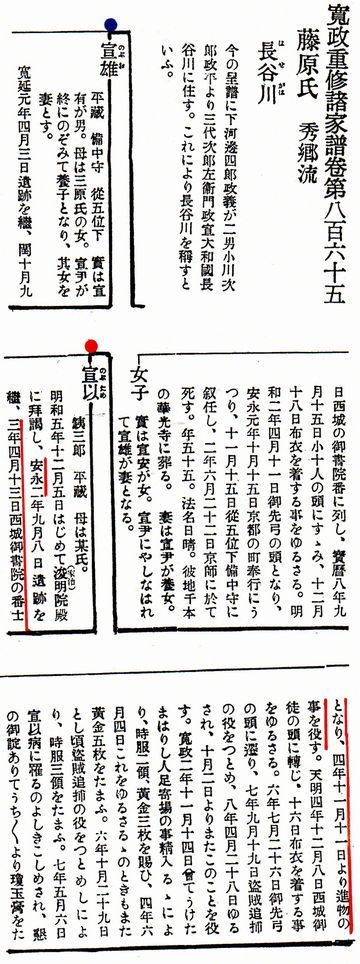 寛政重修諸家譜卷第八百六十五
藤原氏　秀鄕流
長谷川
はせがは
今の呈譜に下河邊四郎政義が二男小川次
郎政平より三代次郎左衞門政宣大和國長
谷川に住す。これにより長谷川を稱すと
いふ。
宣雄
のぶを
平藏　備中守　從五位下　實は宣
有が男。母は三原氏の女。宣尹が
終にのぞみて養子となり、其女を
妻とす。
寬延元年四月三日遺跡を繼、閏十月九
日西城の御書院番に列し、寶曆八年九
月十五日小十人の頭にすゝみ、十二月
十八日布衣を着する事をゆるさる。明
和二年四月十一日御先弓の頭となり、
安永元年十月十五日京都の町奉行にう
つり、十一月十五日從五位下備中守に
叙任し、二年六月二十二日京師に於て
死す。年五十五。法名日晴。彼地千本
の華光寺に葬る。　妻は宣尹が養女。
女子
實は宣安が女。宣尹にやしなはれ
て宣雄が妻となる。
宣以
のぶため
銕三郎　平藏　母は某氏。
明和五年十二月五日はじめて浚明院殿
(家治)
に拜謁し、安永二年九月八日遺跡を
繼、三年四月十三日西城御書院の番士
となり、四年十一月十一日より進物の
事を役す。天明四年十二月八日西城御
徒の頭に轉じ、十六日布衣を着する事
をゆるさる。六年七月二十六日御先弓
の頭に遷り、七年九月十九日盜賊追捕
の役をつとめ、八年四月二十八日ゆる
され、十月二日よりまたこのことを役
す。寬政二年十一月十四日曾てうけた
まはりし人足寄場の事精入るゝによ
り、時服二領、黃金三枚を賜ひ、四年六
月四日これをゆるさるゝのときもまた
黃金五枚をたまふ。六年十月二十九日
とし頃盜賊追捕の役をつとめしによ
り、時服三領をたまふ。七年五月六日
宣以病に罹るのよしきこしめされ、懇
の御諚ありてうち〱より瓊玉膏をた